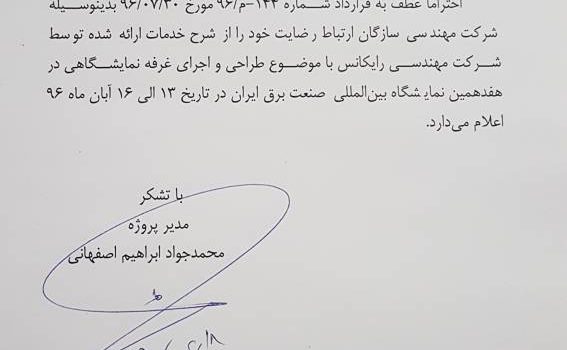 احتراماً عطف به قرارداد شماره ۱۴۴-م/۹۶ مورخ ۹۶/۰۷/۳۰ بدینوسیله
شرکت مهندسی سازگان ارتباط رضایت خود را از شرح خدمات ارائه شده توسط
شرکت مهندسی رایکانس با موضوع طراحی و اجرای غرفه نمایشگاهی در
هفدهمین نمایشگاه بین‌المللی صنعت برق ایران در تاریخ ۱۳ الی ۱۶ آبان ماه ۹۶
اعلام می‌دارد.
با تشکر
مدیر پروژه
محمدجواد ابراهیم اصفهانی